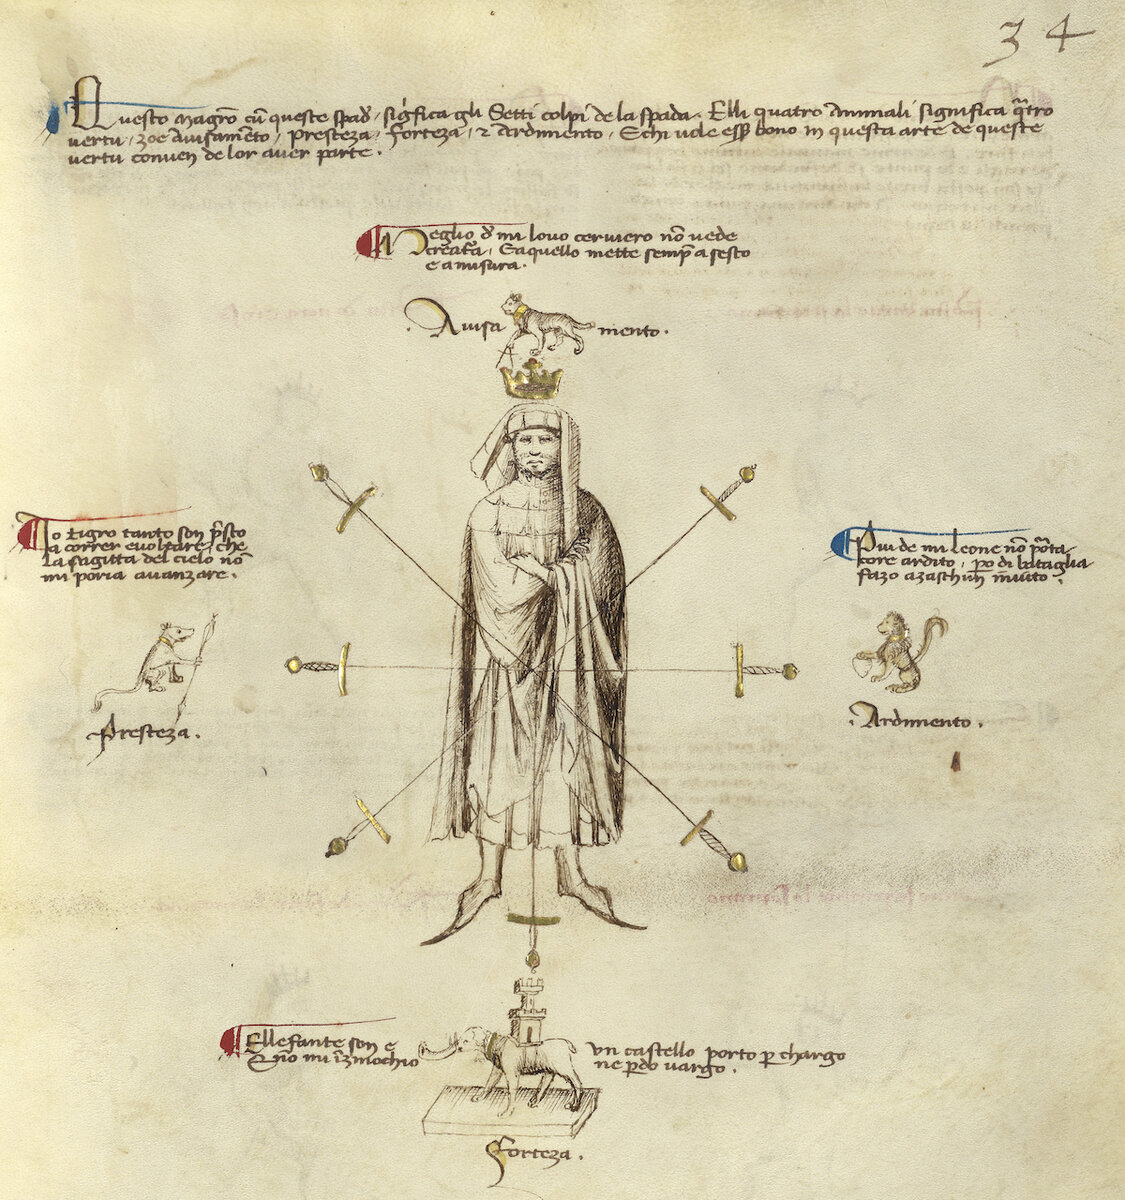 34
Questo Magrõ cũ queste spad̃ sig̃fica gli Setti colpi de la spada. Elli quatro animali significa q̃tro
vertu, zoe avisamẽto, presteza, forteza, ⁊ ardimento. E chi vole ess̃ bono in questa arte de queste
vertu conven de lor aver parte.
Meglio d̃ mi lovo cerviero nõ vede
creat̃a. E aquello mette semp̃ a sesto
e a misura.
Avisamento.
Io tigro tanto son p̃sto
a correr e voltare, che
la sagitta del cielo nõ
mi poria avanzare.
Piu de mi leone nõ porta
core ardito, po di bataglia
fazo a zaschun invito.
Presteza.
Ardimento.
Ellefante son e un castello porto p chargo
E nõ mi inzinochio ne pdo vargo.
Forteza.